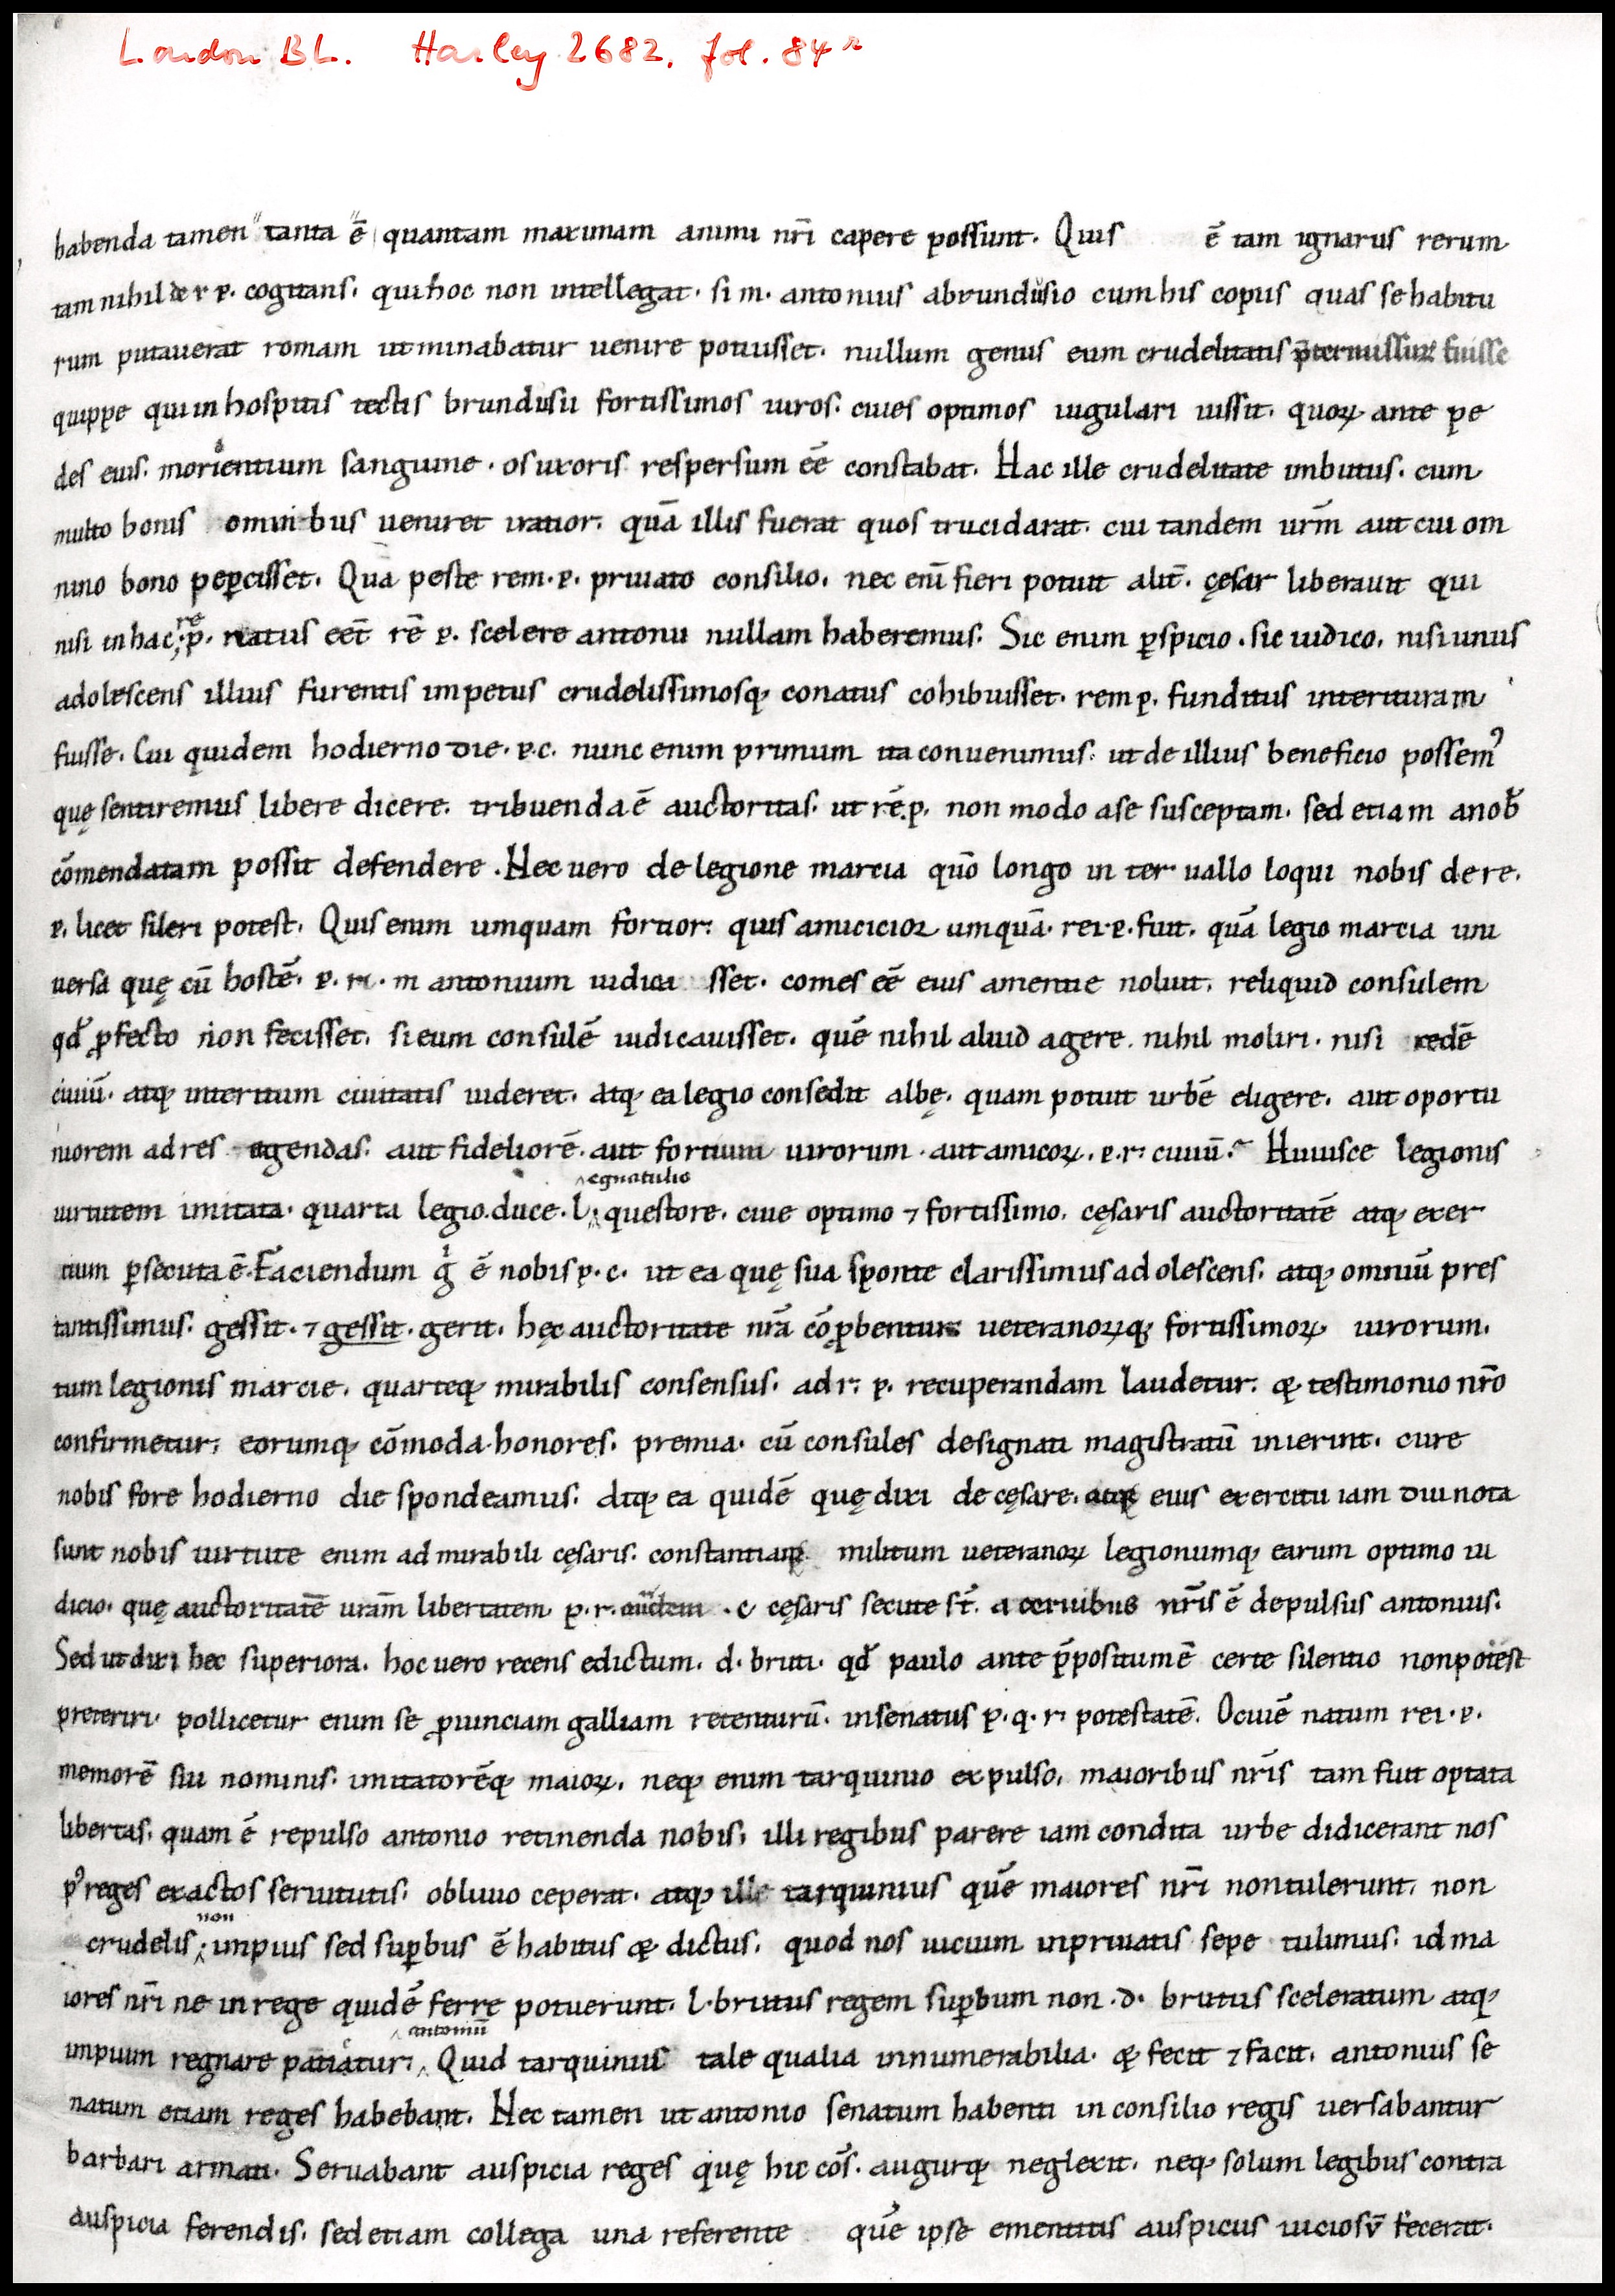 London BL. Harley 2682, fol. 84r
habenda tamen tanta ē quantam maximam animi nr̄i capere possunt. Quis ē tam ignarus rerum
tam nihil de r p. cogitans. qui hoc non intellegat. si m. antonius abrundusio cum his copiis quas se habitu
rum putauerat romam ut minabatur uenire potuisset. nullum genus eum crudelitatis p̄termissuꝝ fuisse
quippe qui in hospitis tectis brundisii fortissimos uiros. ciues optimos iugulari iussit. quoꝝ ante pe
des eius. morientium sanguine. os uxoris respersum eē constabat. Hac ille crudelitate imbutus. cum
multo bonis omnibus ueniret iratior. quā illis fuerat quos trucidarat. cui tandem urm̄ aut cui om
nino bono peꝑcisset. Qua peste rem. p. priuato consilio. nec enī fieri potuit alit̄. cęsar liberauit qui
nisi in hac re p̄. natus eet̄ rē p. scelere antonii nullam haberemus. Sic enim ꝑspicio. sic iudico. nisi unus
adolescens illius furentis impetus crudelissimosq; conatus cohibuisset. rem p. funditus interituram
fuisse. Cui quidem hodierno die. p. c. nunc enim primum ita conuenimus. ut de illius beneficio possem᾽
quę sentiremus libere dicere. tribuenda ē auctoritas. ut rē. p. non modo a se susceptam. sed etiam a nob̄
cōmendatam possit defendere. Hec uero de legione marcia quō longo in ter uallo loqui nobis de re.
p. licet sileri potest. Quis enim umquam fortior. quis amicicioꝛ umquā. rei p. fuit. quā legio marcia uni
uersa quę cū hostē. p. r. m antonium iudica sset. comes eē eius amentie noluit. reliquid consulem
qd̄ ꝓfecto non fecisset. si eum consulē iudicauisset. quē nihil aliud agere. nihil moliri. nisi cedē
ciuiū. atq; interitum ciuitatis uideret. Atq; ea legio consedit albę. quam potuit urbē eligere. aut oportu
niorem ad res agendas. aut fideliorē. aut fortium uirorum. aut amicoꝝ. p. r. ciuiū. Huiusce legionis
uirtutem imitata. quarta legio. duce. l. egnatulio questore. ciue optimo ⁊ fortissimo. cęsaris auctoritatē atq; exer
citum ꝑsecuta ē. Faciendum gͥ ē nobis p. c. ut ea quę sua sponte clarissimus adolescens. atq; omniū pres
tantissimus. gessit. ⁊ gessit. gerit. hęc auctoritate nrā cōꝓbentur ueteranoꝝq; fortissimoꝝ uirorum.
tum legionis marcie. quarteq; mirabilis consensus. ad r. p. recuperandam laudetur. &q; testimonio nr̄o
confirmetur. eorumq; cōmoda. honores. premia. cū consules designati magistratū inierint. cure
nobis fore hodierno die spondeamus. Atq; ea quidē quę dixi de cęsare. atq; eius exercitu iam diu nota
sunt nobis uirtute enim admirabili cęsaris. constantiaq; militum ueteranoꝝ legionumq; earum optimo iu
dicio. quę auctoritatē uram̄ libertatem p. r. c cęsaris secute st̄. a ceruibus nr̄is ē depulsus antonius.
Sed ut dixi hec superiora. hoc uero recens edictum. d. bruti. qd̄ paulo ante p̄positum ē certe silentio non potest
preteriri pollicetur enim se ꝓuinciam galliam retenturū. in senatus p. q. r. potestatē. O ciuē natum rei. p.
memorē sui nominis. imitatorēq; maioꝝ. neq; enim tarquinio expulso. maioribus nr̄is tam fuit optata
libertas. quam ē repulso antonio retinenda nobis. illi regibus parere iam condita urbe didicerant nos
p᾽ reges exactos seruitutis. obliuio ceperat. atq; ille tarquinius quē maiores nr̄i non tulerunt. non
crudelis non impius sed suꝑbus ē habitus &q; dictus. quod nos uicium inpriuatis sepe tulimus. id ma
iores nr̄i ne in rege quidē ferre potuerunt. l. brutus regem suꝑbum non. d. brutus sceleratum atq;
impium regnare patiatur. antoniū Quid tarquinius tale qualia innumerabilia. &q; fecit ⁊ facit. antonius se
natum etiam reges habebant. Hec tamen ut antonio senatum habenti in consilio regis uersabantur
barbari armati. Seruabant auspicia reges quę hic cōs. augurq; neglexit. neq; solum legibus contra
auspicia ferendis. sed etiam collega una referente quē ipse ementitis auspiciis uiciosū fecerat.